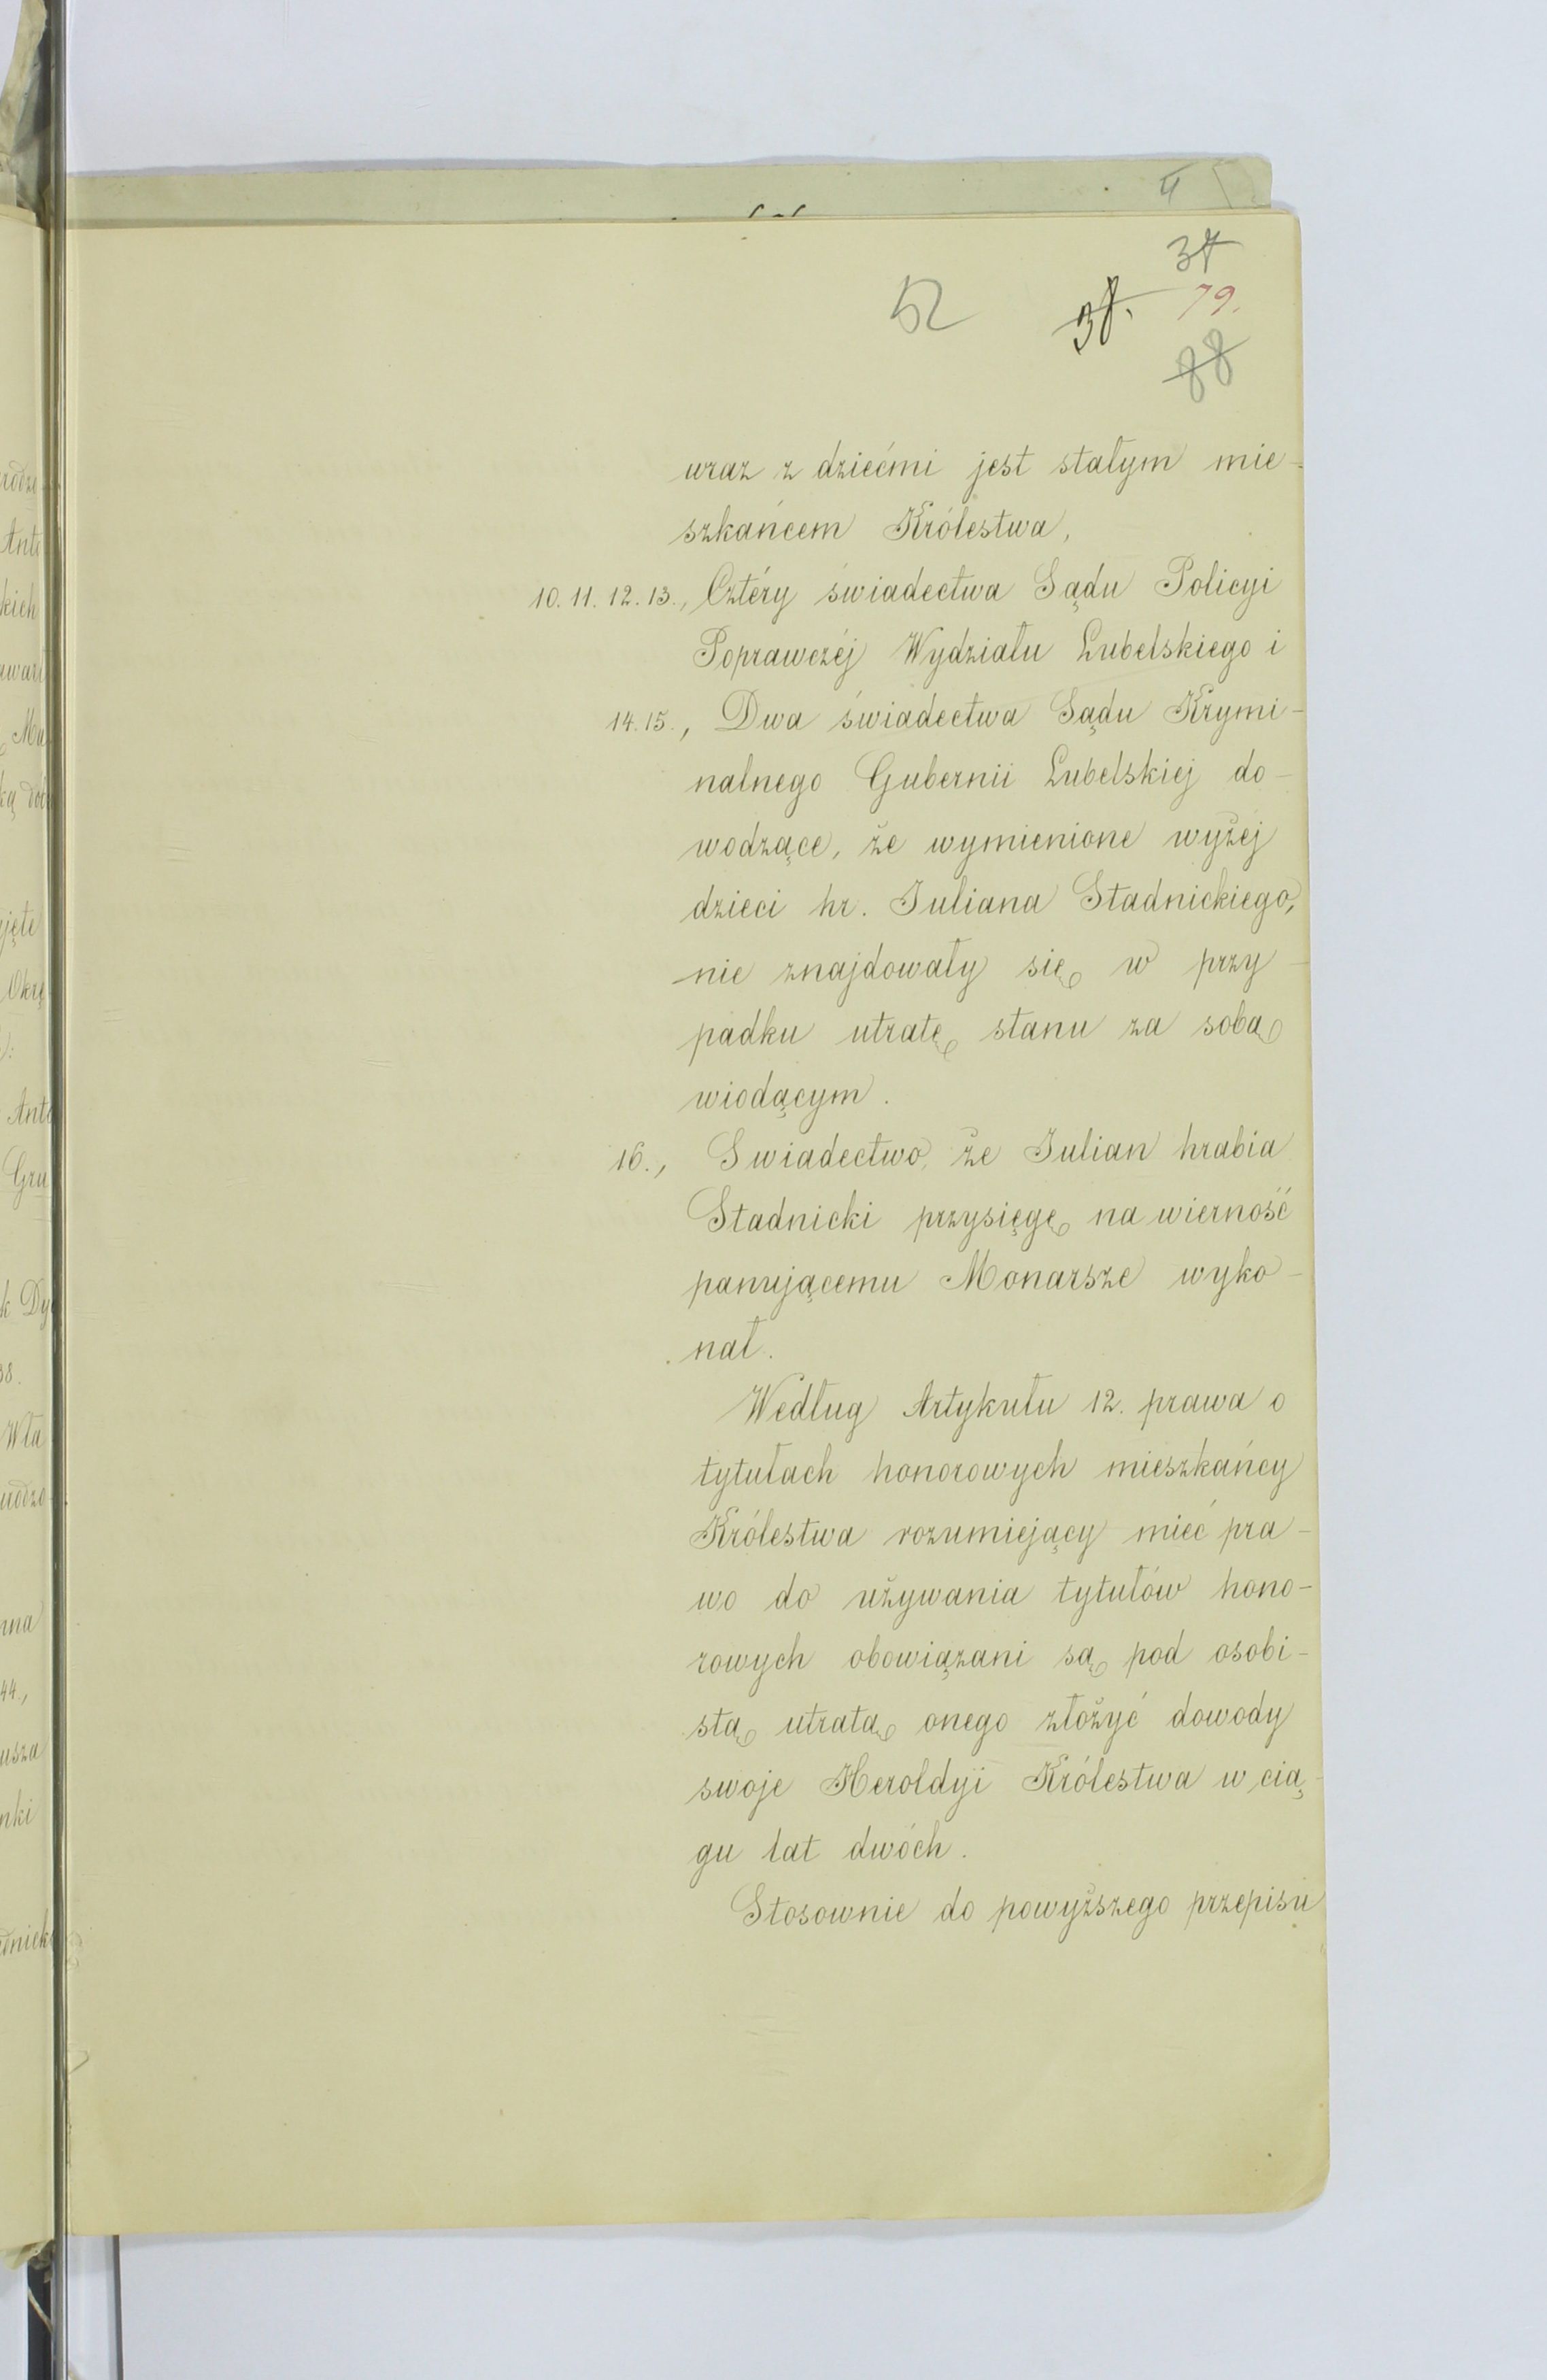 37
52 38. 79.
88
wraz z dziećmi jest stałym mie-
szkańcem Królestwa,
10. 11. 12. 13., Cztéry świadectwa Sądu Policyi
Poprawczéj Wydziału Lubelskiego i
14. 15., Dwa świadectwa Sądu Krymi-
nalnego Gubernii Lubelskiej do-
wodzące, że wymienione wyżej
dzieci hr. Juliana Stadnickiego,
nie znajdowały się w przy-
padku utratę stanu za sobą
wiodącym.
16., Swiadectwo, że Julian hrabia
Stadnicki przysięgę na wierność
panującemu Monarsze wyko-
nał.
Według Artykułu 12. prawa o
tytułach honorowych mieszkańcy
Królestwa rozumiejący mieć pra-
wo do używania tytułów hono-
rowych obowiązani są pod osobi-
stą utratą onego złożyć dowody
swoje Heroldyi Królestwa w cią-
gu lat dwóch.
Stosownie do powyższego przepisu